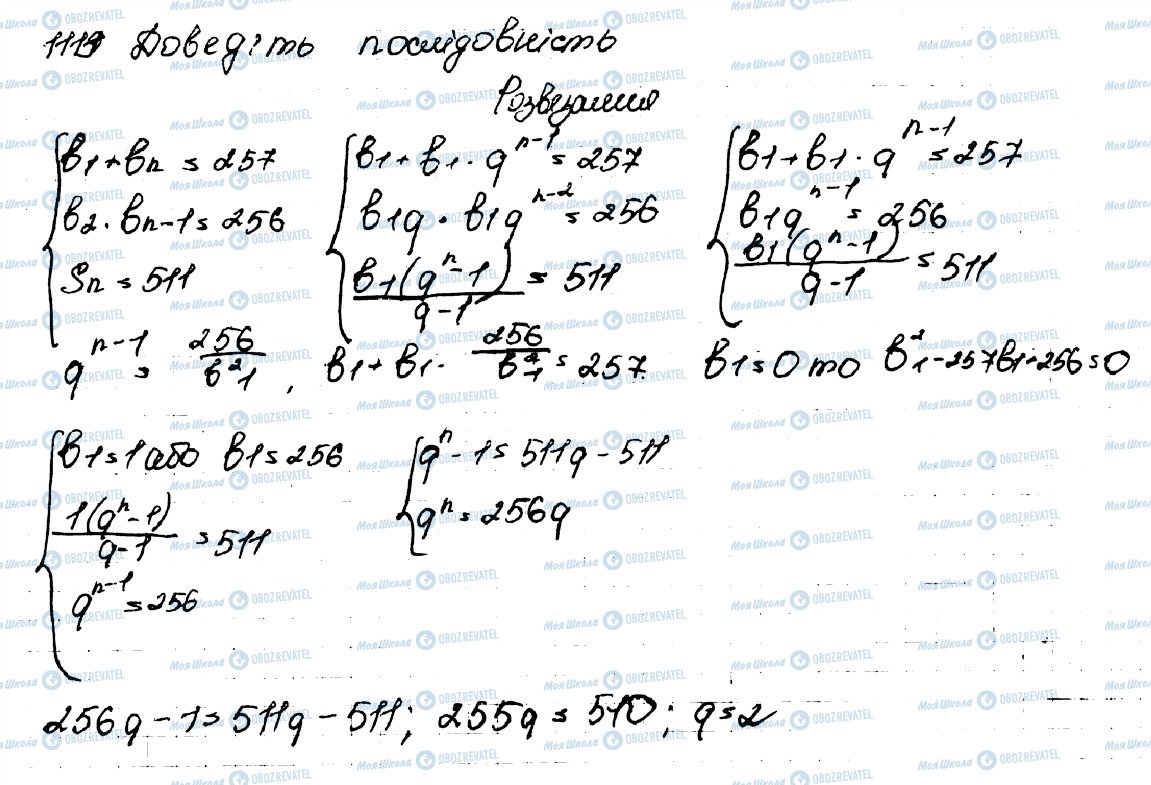 1119 Доведіть послідовність
Розвезання
b1+bn = 257
b2·bn-1 = 256
Sn = 511
b1+b1·q^n-1 = 257
b1q·b1q^n-2 = 256
b1(q^n-1)/q-1 = 511
b1+b1·q^n-1 = 257
b1q^n-1 = 256
b1(q^n-1)/q-1 = 511
q^n-1 = 256/b²1, b1+b1·256/b²1 = 257 b1=0 то b²1-257b1+256=0
b1=1 або b1=256
1(q^n-1)/q-1 = 511
q^n-1 = 256
q^n-1 = 511q-511
q^n = 256q
256q-1=511q-511; 255q=510; q=2
МояШкола OBOZREVATEL